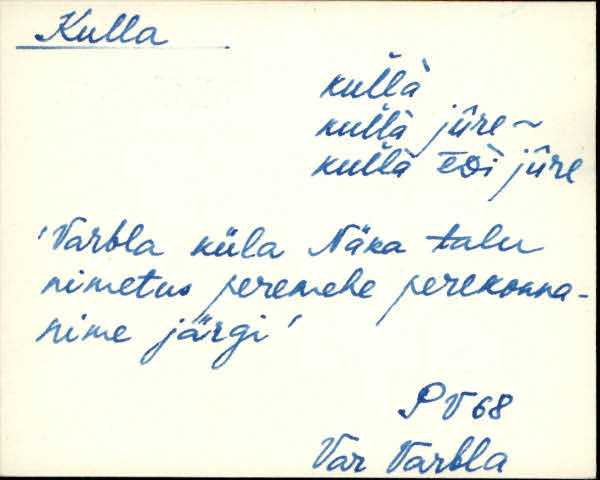 Kulla
kul̆l̆à
kul̆l̆à jûre ~
kul̆l̆à jûre
'Varbla küla Näka talu
nimetus peremehe perekonna-
nime järgi'
PV 68
Var Varbla